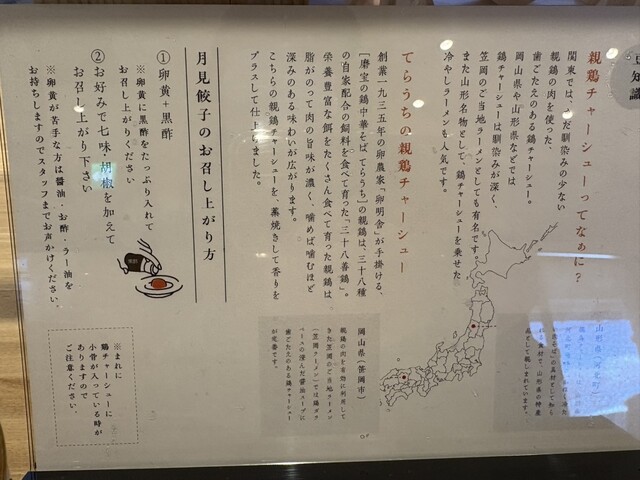 豆知識
親鶏チャーシューってなぁに？
関東では、まだ馴染みの少ない
親鶏の肉を使った、
歯ごたえのある鶏チャーシュー。
岡山県や山形県などでは
鶏チャーシューは馴染みが深く、
笠岡のご当地ラーメンとしても有名です。
また山形名物として、鶏チャーシューを乗せた
冷やしラーメンも人気です。
てらうちの親鶏チャーシュー
創業一九三五年の卵農家「卵明舎」が手掛ける、
［磨宝の鶏中華そば てらうち］の親鶏は、三十八種
の自家配合の飼料を食べて育った「三十八番鶏」。
栄養豊富な餌をたくさん食べて育った親鶏は
脂がのって肉の旨味が濃く、噛めば噛むほど
深みのある味わいが広がります。
こちらの親鶏チャーシューを、藁焼きして香りを
プラスして仕上げました。
山形県（河北町）
岡山県（笠岡市）
親鶏の肉を有効に利用して
きた笠岡のご当地ラーメン
（笠岡ラーメン）では鶏ガラ
ベースの澄んだ醤油スープに
歯ごたえのある鶏チャーシュー
が定番です。
月見餃子のお召し上がり方
①卵黄＋黒酢
※卵黄に黒酢をたっぷり入れて
お召し上がりください
②お好みで七味・胡椒を加えて
お召し上がり下さい
※卵黄が苦手な方は醤油・お酢・ラー油を
お持ちしますのでスタッフまでお声かけください。
黒酢
※まれに
鶏チャーシューに
小骨が入っている時が
ありますので
ご注意ください。